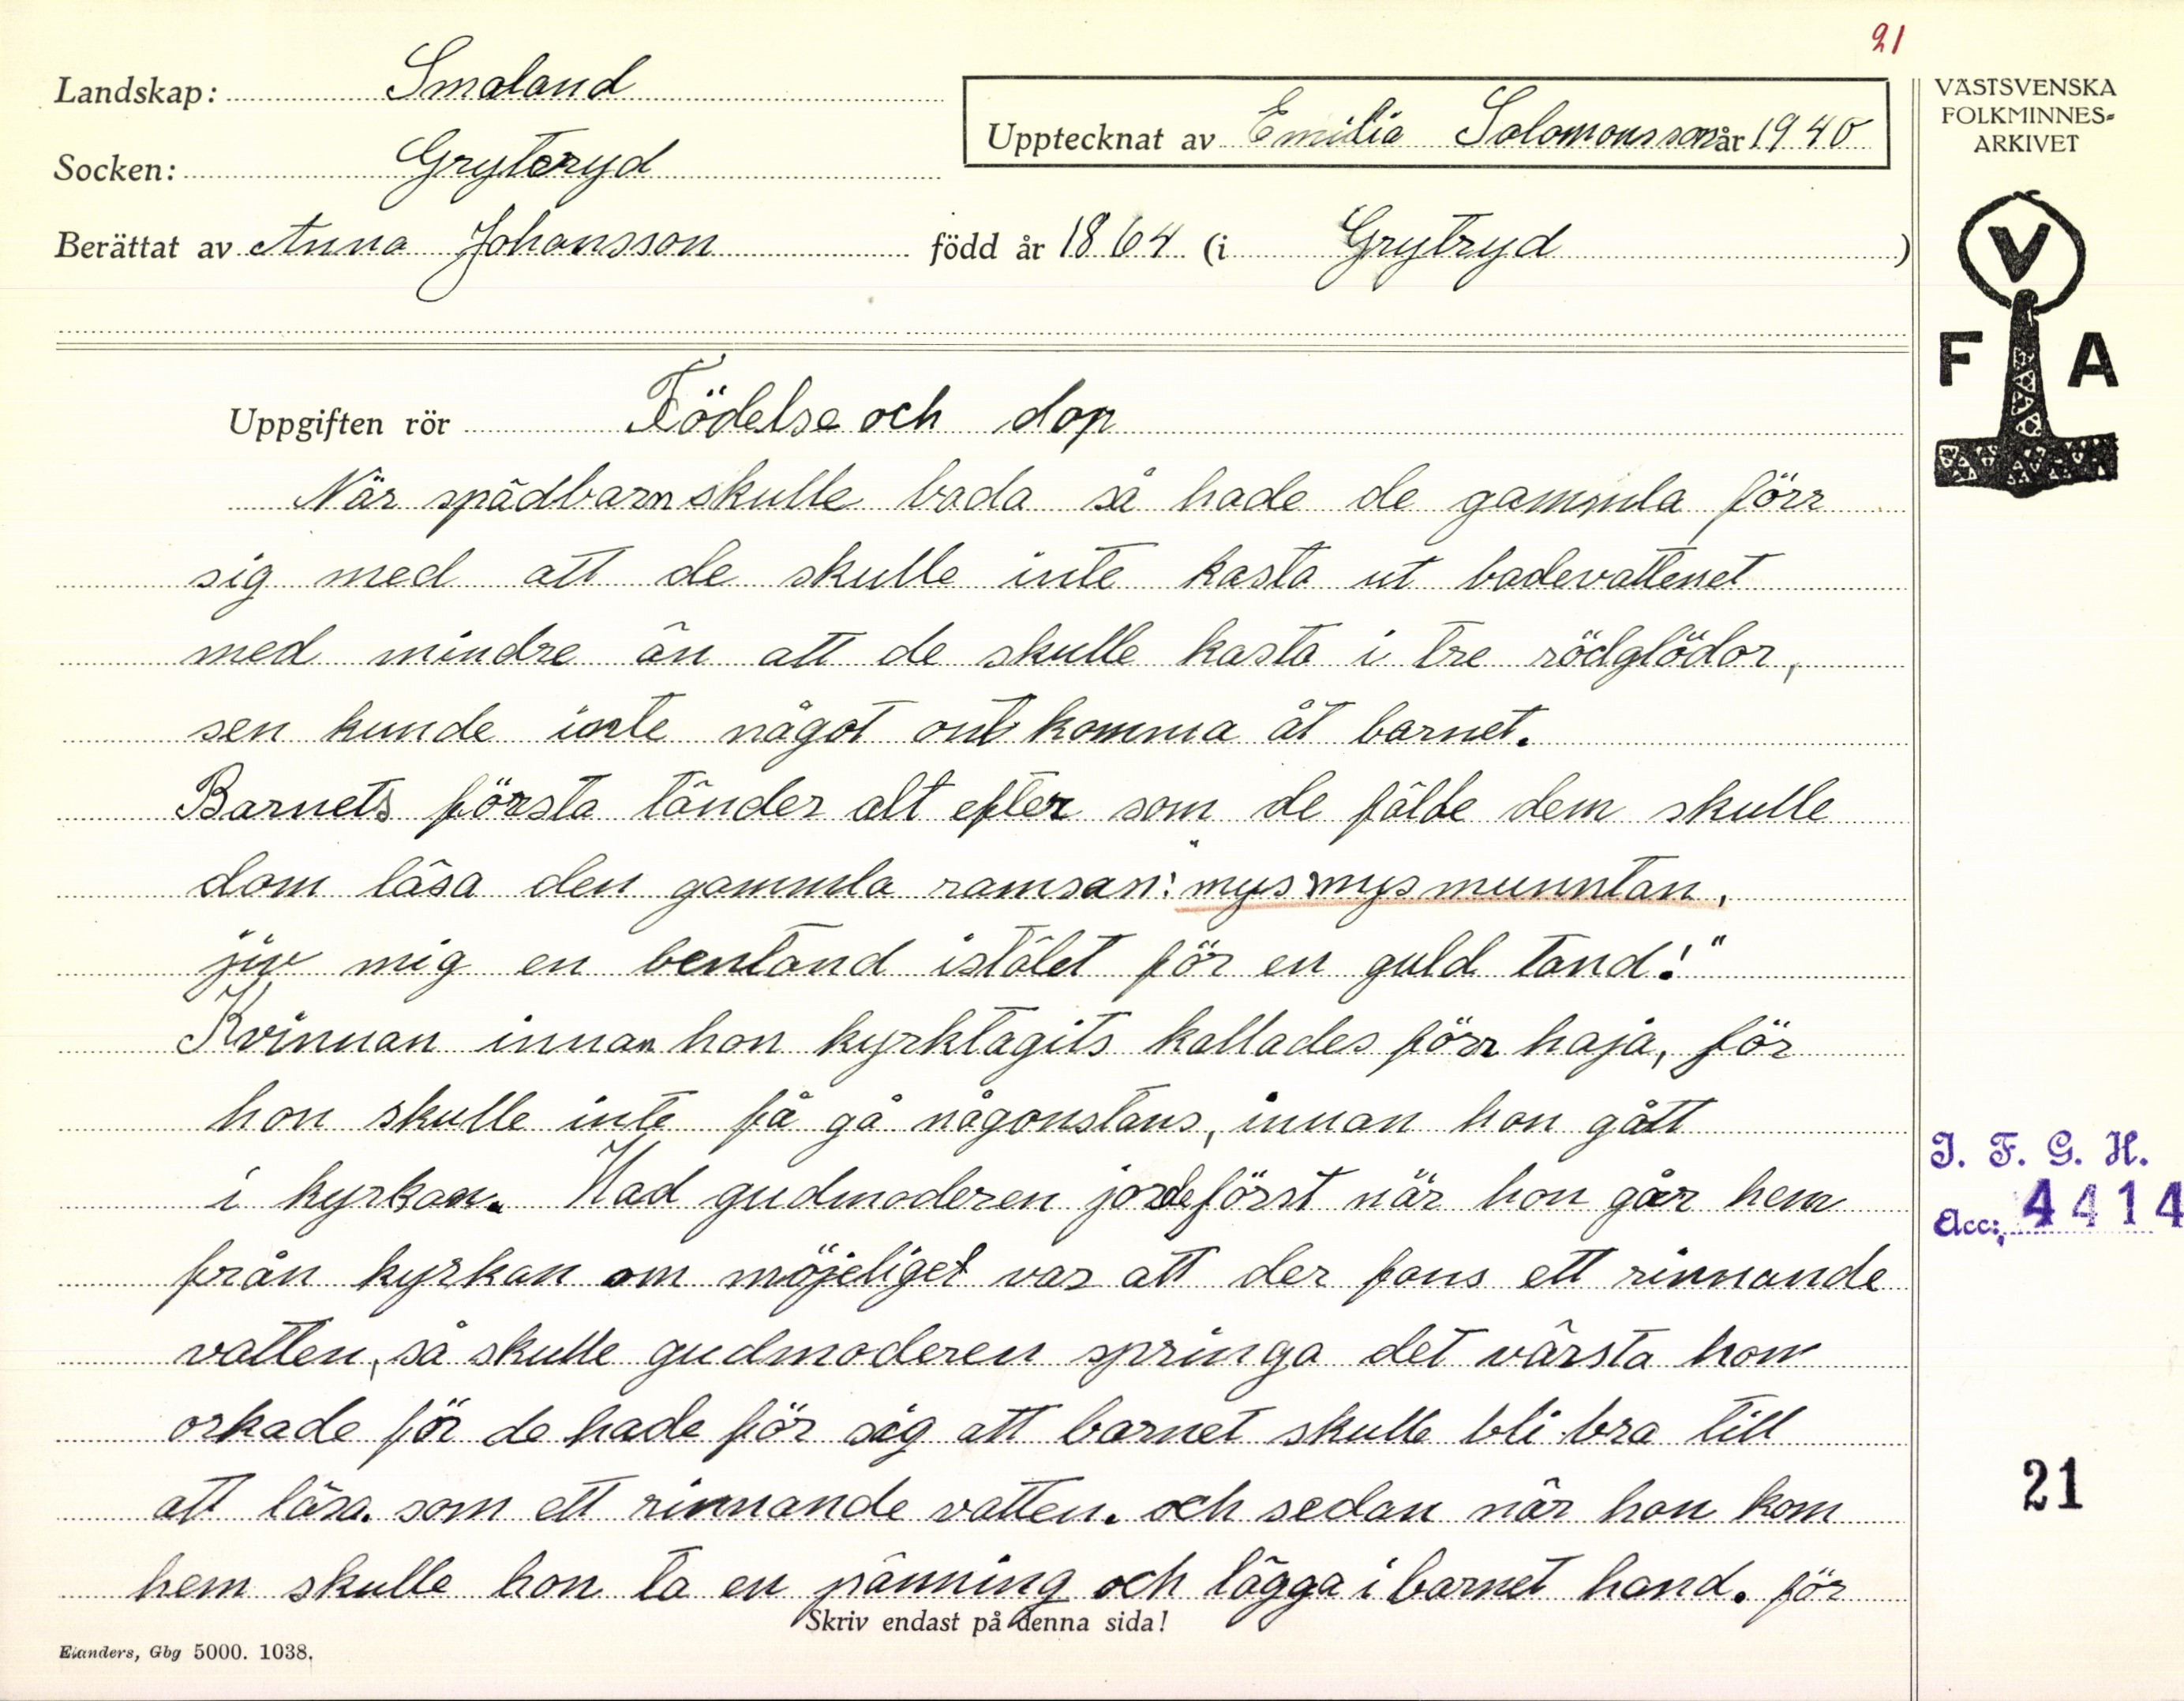 21
Landskap: Smaland
Upptecknat av Emilia Solomonsson år 1940
Socken: Gryteryd
Berättat av Anna Johansson född år 1864 (i Grytryd )
VÄSTSVENSKA
FOLKMINNES-
ARKIVET
V
F A
Uppgiften rör Födelse och dop
När spädbarn skulle bada så hade de gammla förr
sig med att de skulle inte kasta ut badevattenet
med mindre än att de skulle kasta i tre rödglödor,
sen kunde inte något ont komma åt barnet.
Barnets första tänder alt efter som de fälde dem skulle
dom läsa den gammla ramsan: "mys mys munntan,
jiv mig en bentand istålet för en guld tand!"
Kvinnan innan hon kyrktagits kallades förr haja, för
hon skulle inte få gå någonstans, innan hon gått
i kyrkan. Vad gudmoderen jorde först när hon går hem
från kyrkan om möjeliget var att der fans ett rinnande
vatten, så skulle gudmoderen springa det värsta hon
orkade för de hade för sig att barnet skulle bli bra till
att läsa. som ett rinnande vatten. och sedan när hon kom
hem skulle hon ta en pänning och lägga i barnet hand. för
Skriv endast på denna sida!
Elanders, Gbg 5000. 1038.
I. F. G. H.
Acc: 4414
21